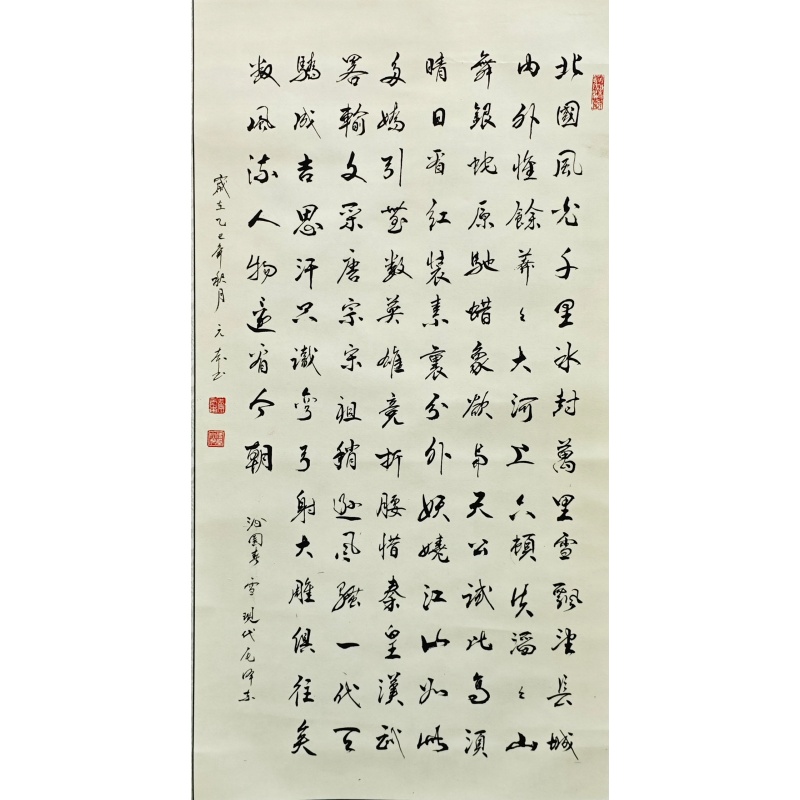 北國風光千里冰封萬里雪飄望長城
內外惟餘莽々大河上下頓失滔々山
舞銀蛇原馳蜡象欲与天公試比高須
晴日看紅裝素裹分外妖嬈江山如此
多嬌引無數英雄競折腰惜秦皇漢武
畧輸文采唐宗宋祖稍遜風騷一代天
驕成吉思汗只識彎弓射大雕俱往矣
数風流人物還看今朝
沁園春雪現代毛澤東
歲在乙巳年秋月元本书